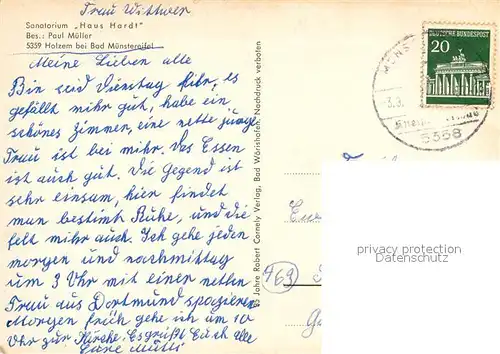 Frau Wittwer
Sanatorium „Haus Hardt"
Bes.: Paul Müller
5359 Holzem bei Bad Münstereifel
Meine Lieben alle
Bin seid Dienstag hihr, es
gefällt mihr gut, habe ein
schönes zimmer, eine nette junge
Frau ist bei mihr. Das Essen
ist auch gut. Die Gegend ist
sehr einsam, hier findet
man bestimt Ruhe, und die
felt mihr auch. Ich gehe jeden
morgen und nachmittag
um 3 Uhr mit einer netten
Frau aus Dortmund spazieren
Morgen früh gehe ich um 10
Uhr zur Kirche. Es grüßt Euch alle
Eure Mutti
40 Jahre Robert Cornely Verlag, Bad Wörishofen. Nachdruck verboten
DEUTSCHE BUNDESPOST
20
MÜNS
-3.3.
5358
469
privacy protection
Datenschutz